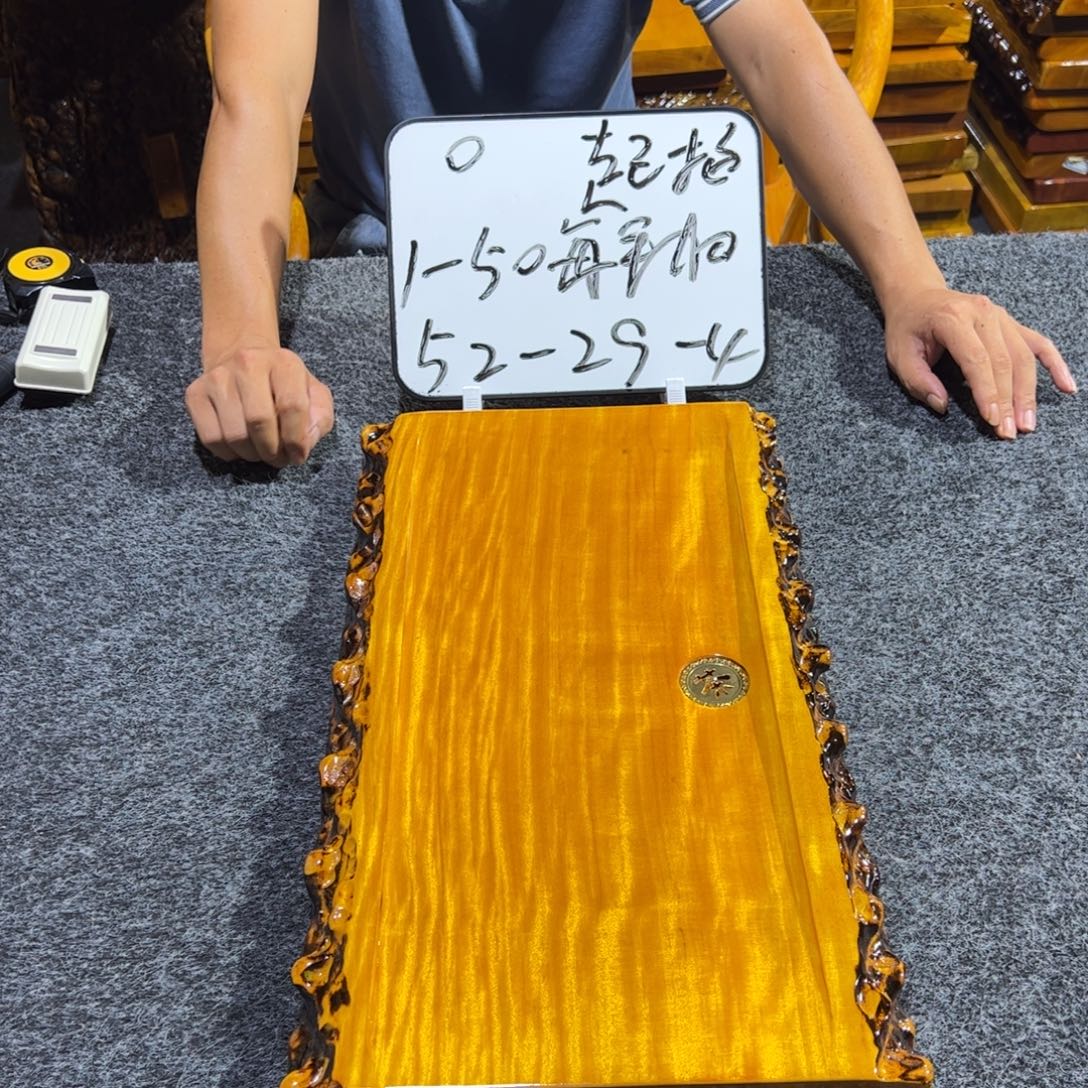 0 起拍
1-50每手加
52-29-4